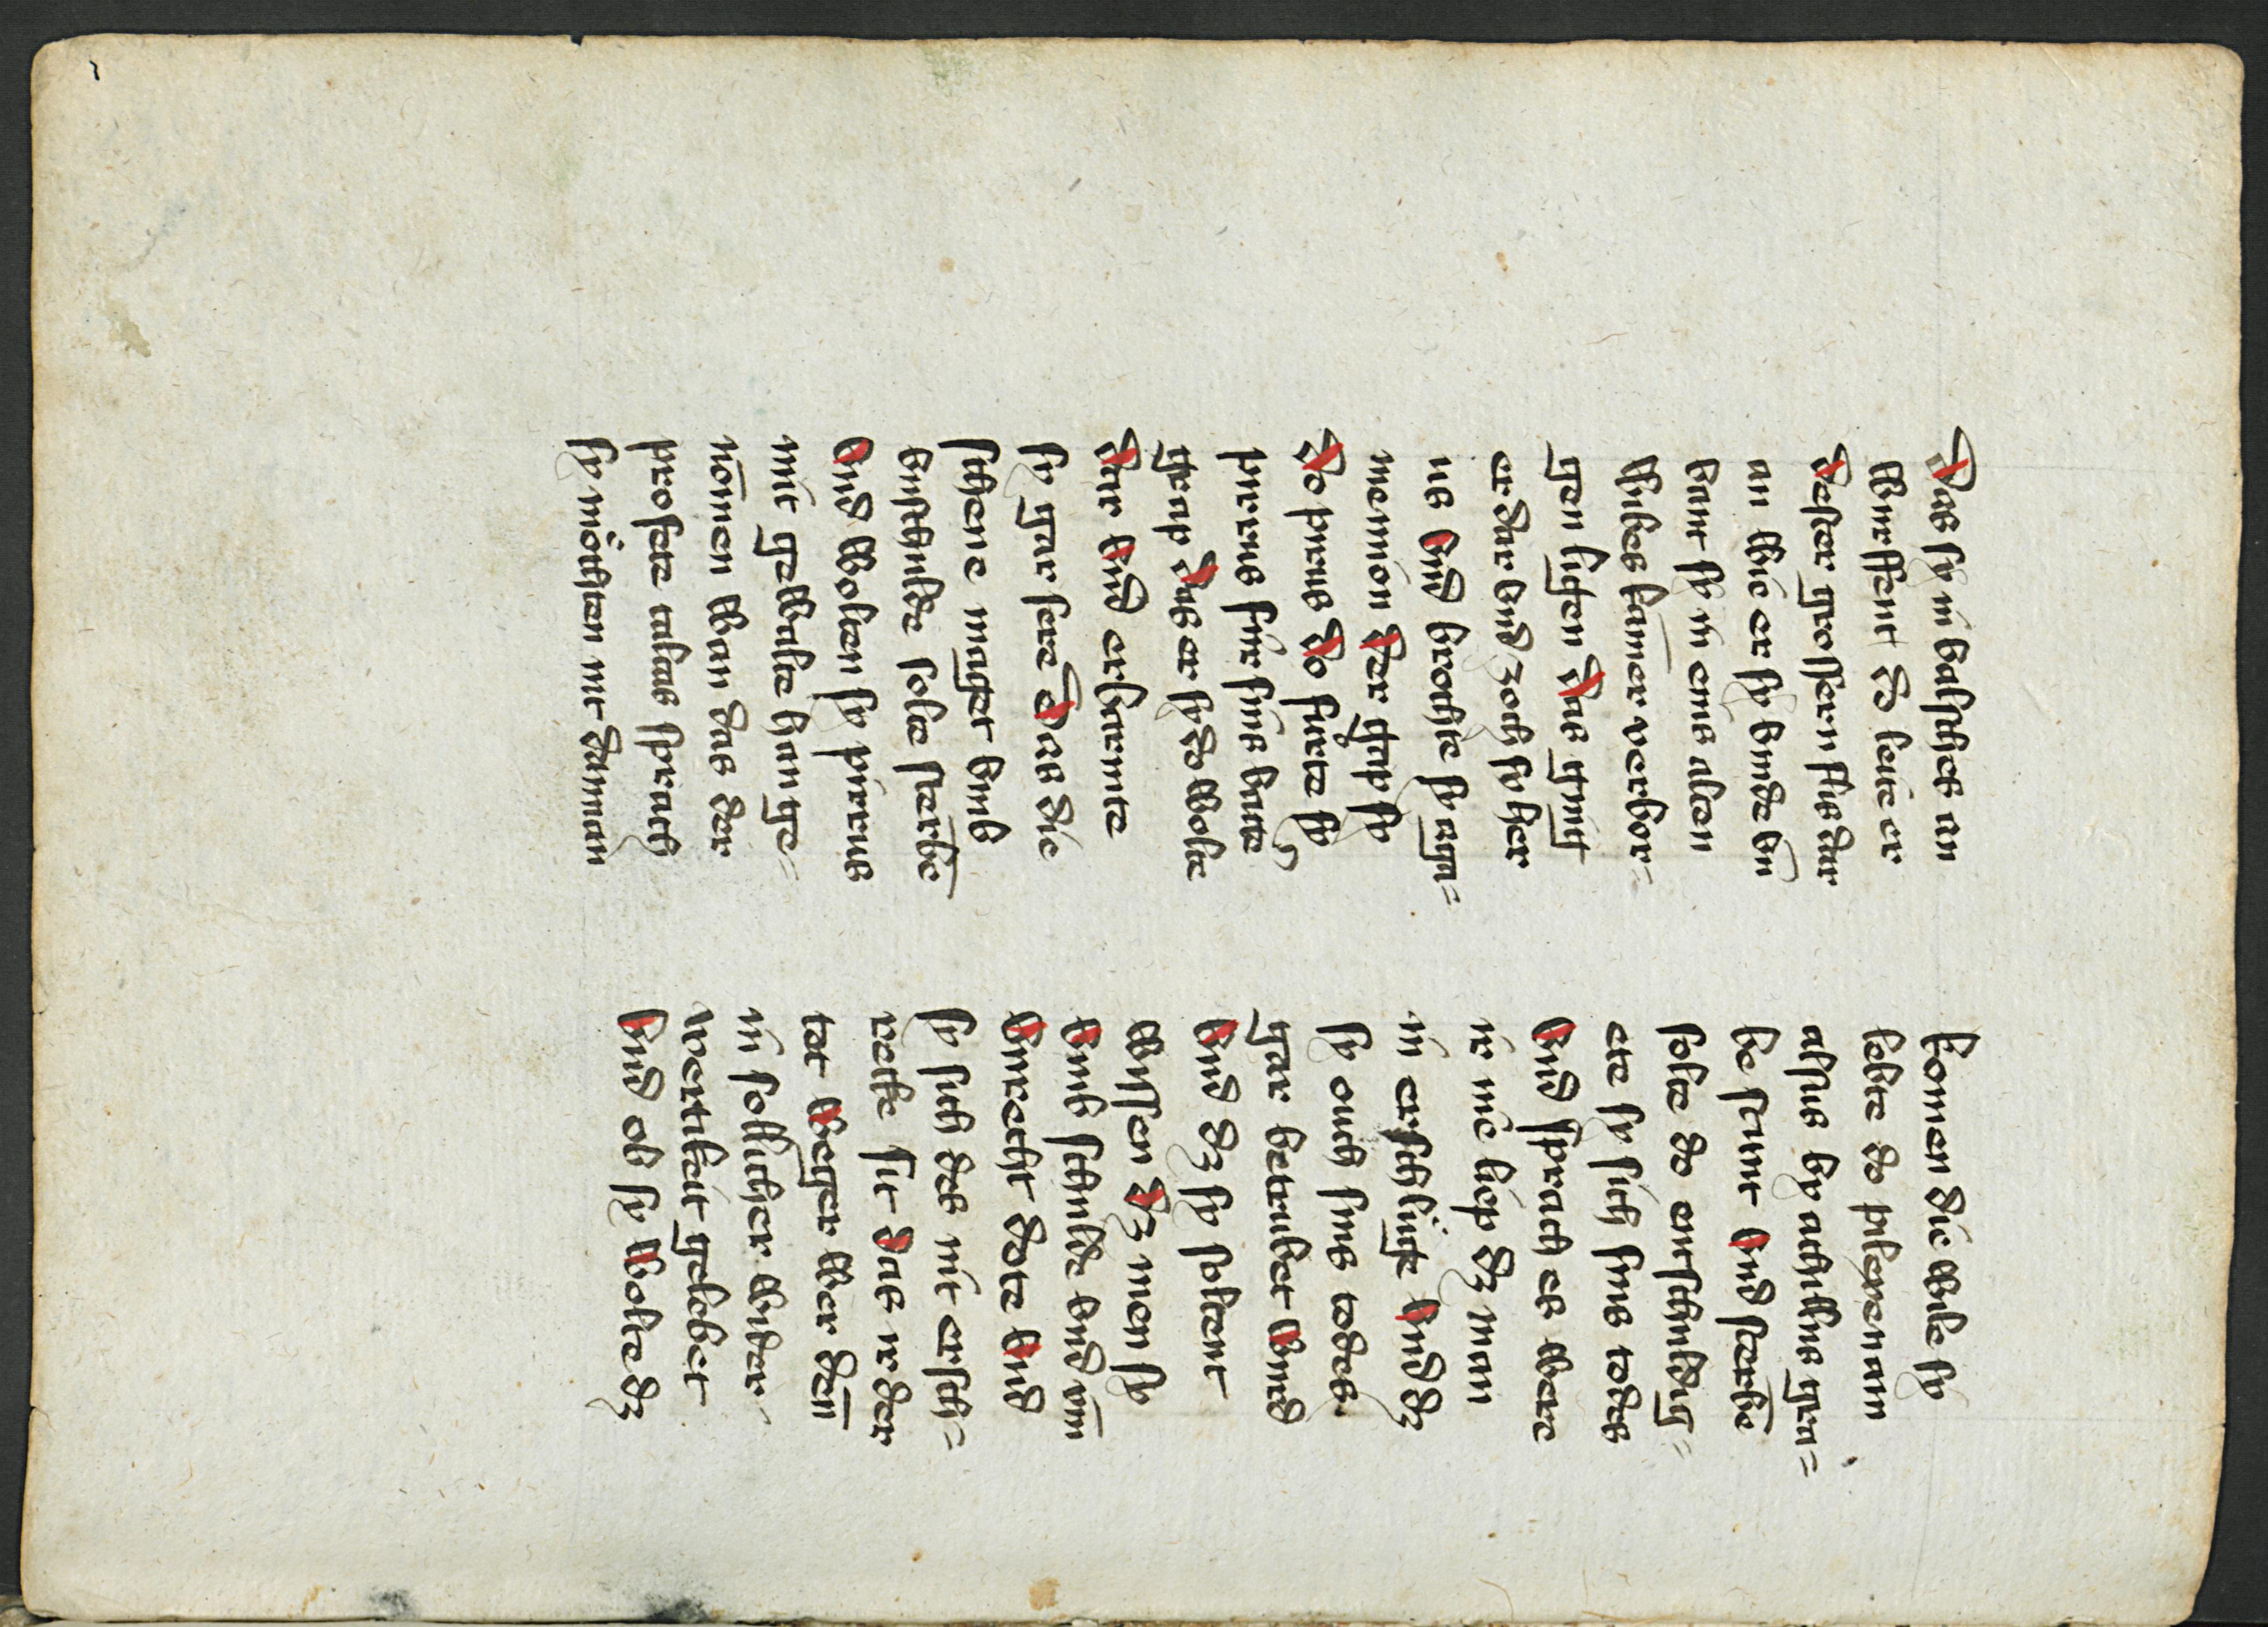 Das sy in balsches an
wurffent do leite er
dester grossern flis dar
an wie er sy vinde vn̄
vant sy in eins alten
wibes kam̄er verbor=
gen ligen das ging
er dar vnd zoch sy her
us vnd brochte sy aga=
mennon der gap sy
Do pirus do fürte sy
pirrus für sins vatter
grap das er sy do wolte
Dar vnd erbarmte
sy gar sere Das die
schene maget vmb
vnschulde solte sterbē
vnd wolten sy pirrus
mit gewalte han ge=
nom̄en wan das der
profete calcas sprach
sy möchten nit danman
komen die wile sy
lebte do polixenam
alsus by achillus gra=
be stunt vnd sterbē
solte do entschuldig=
ete sy sich sins todes
vnd sprach es were
ir nie liep dz man
in erschlüge vnd dz
sy ouch sins todes.
gar betrubet wurd
vnd dz sy soltent
wissen dz men sy
vmb schulde vnd vm̄
vnrecht dote vnd
sy sich des nit ersch=
recke sit das ir der
tot weger wer den̄
in sollicher wider
wertikeit gelebet
vnd ob sy wolte dz